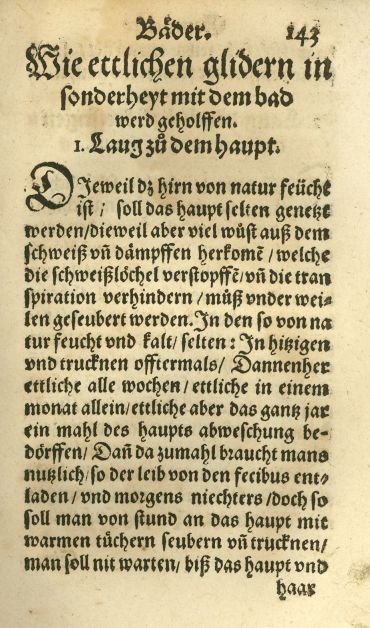 Bäder. 143
Wie ettlichen glidern in
sonderheyt mit dem bad
werd geholffen.
1. Laug zů dem haupt.
DJeweil dz hirn von natur feücht
ist / soll das haupt selten genetzt
werden / dieweil aber viel wůst auß dem
schweiß vñ dämpffen herkomẽ / welche
die schweißlöchel verstopffẽ / vñ die tran
spiration verhindern / můß vnder wei-
len geseubert werden. In den so von na
tur feucht vnd kalt / selten : In hitzigen
vnd trucknen offtermals / Dannenher
ettliche alle wochen / ettliche in einem
monat allein / ettliche aber das gantz jar
ein mahl des haupts abweschung be-
dörffen / Dañ da zumahl braucht mans
nutzlich / so der leib von den fecibus ent-
laden / vnd morgens niechters / doch so
soll man von stund an das haupt mit
warmen tüchern seubern vñ trucknen /
man soll nit warten / biß das haupt vnd
haar